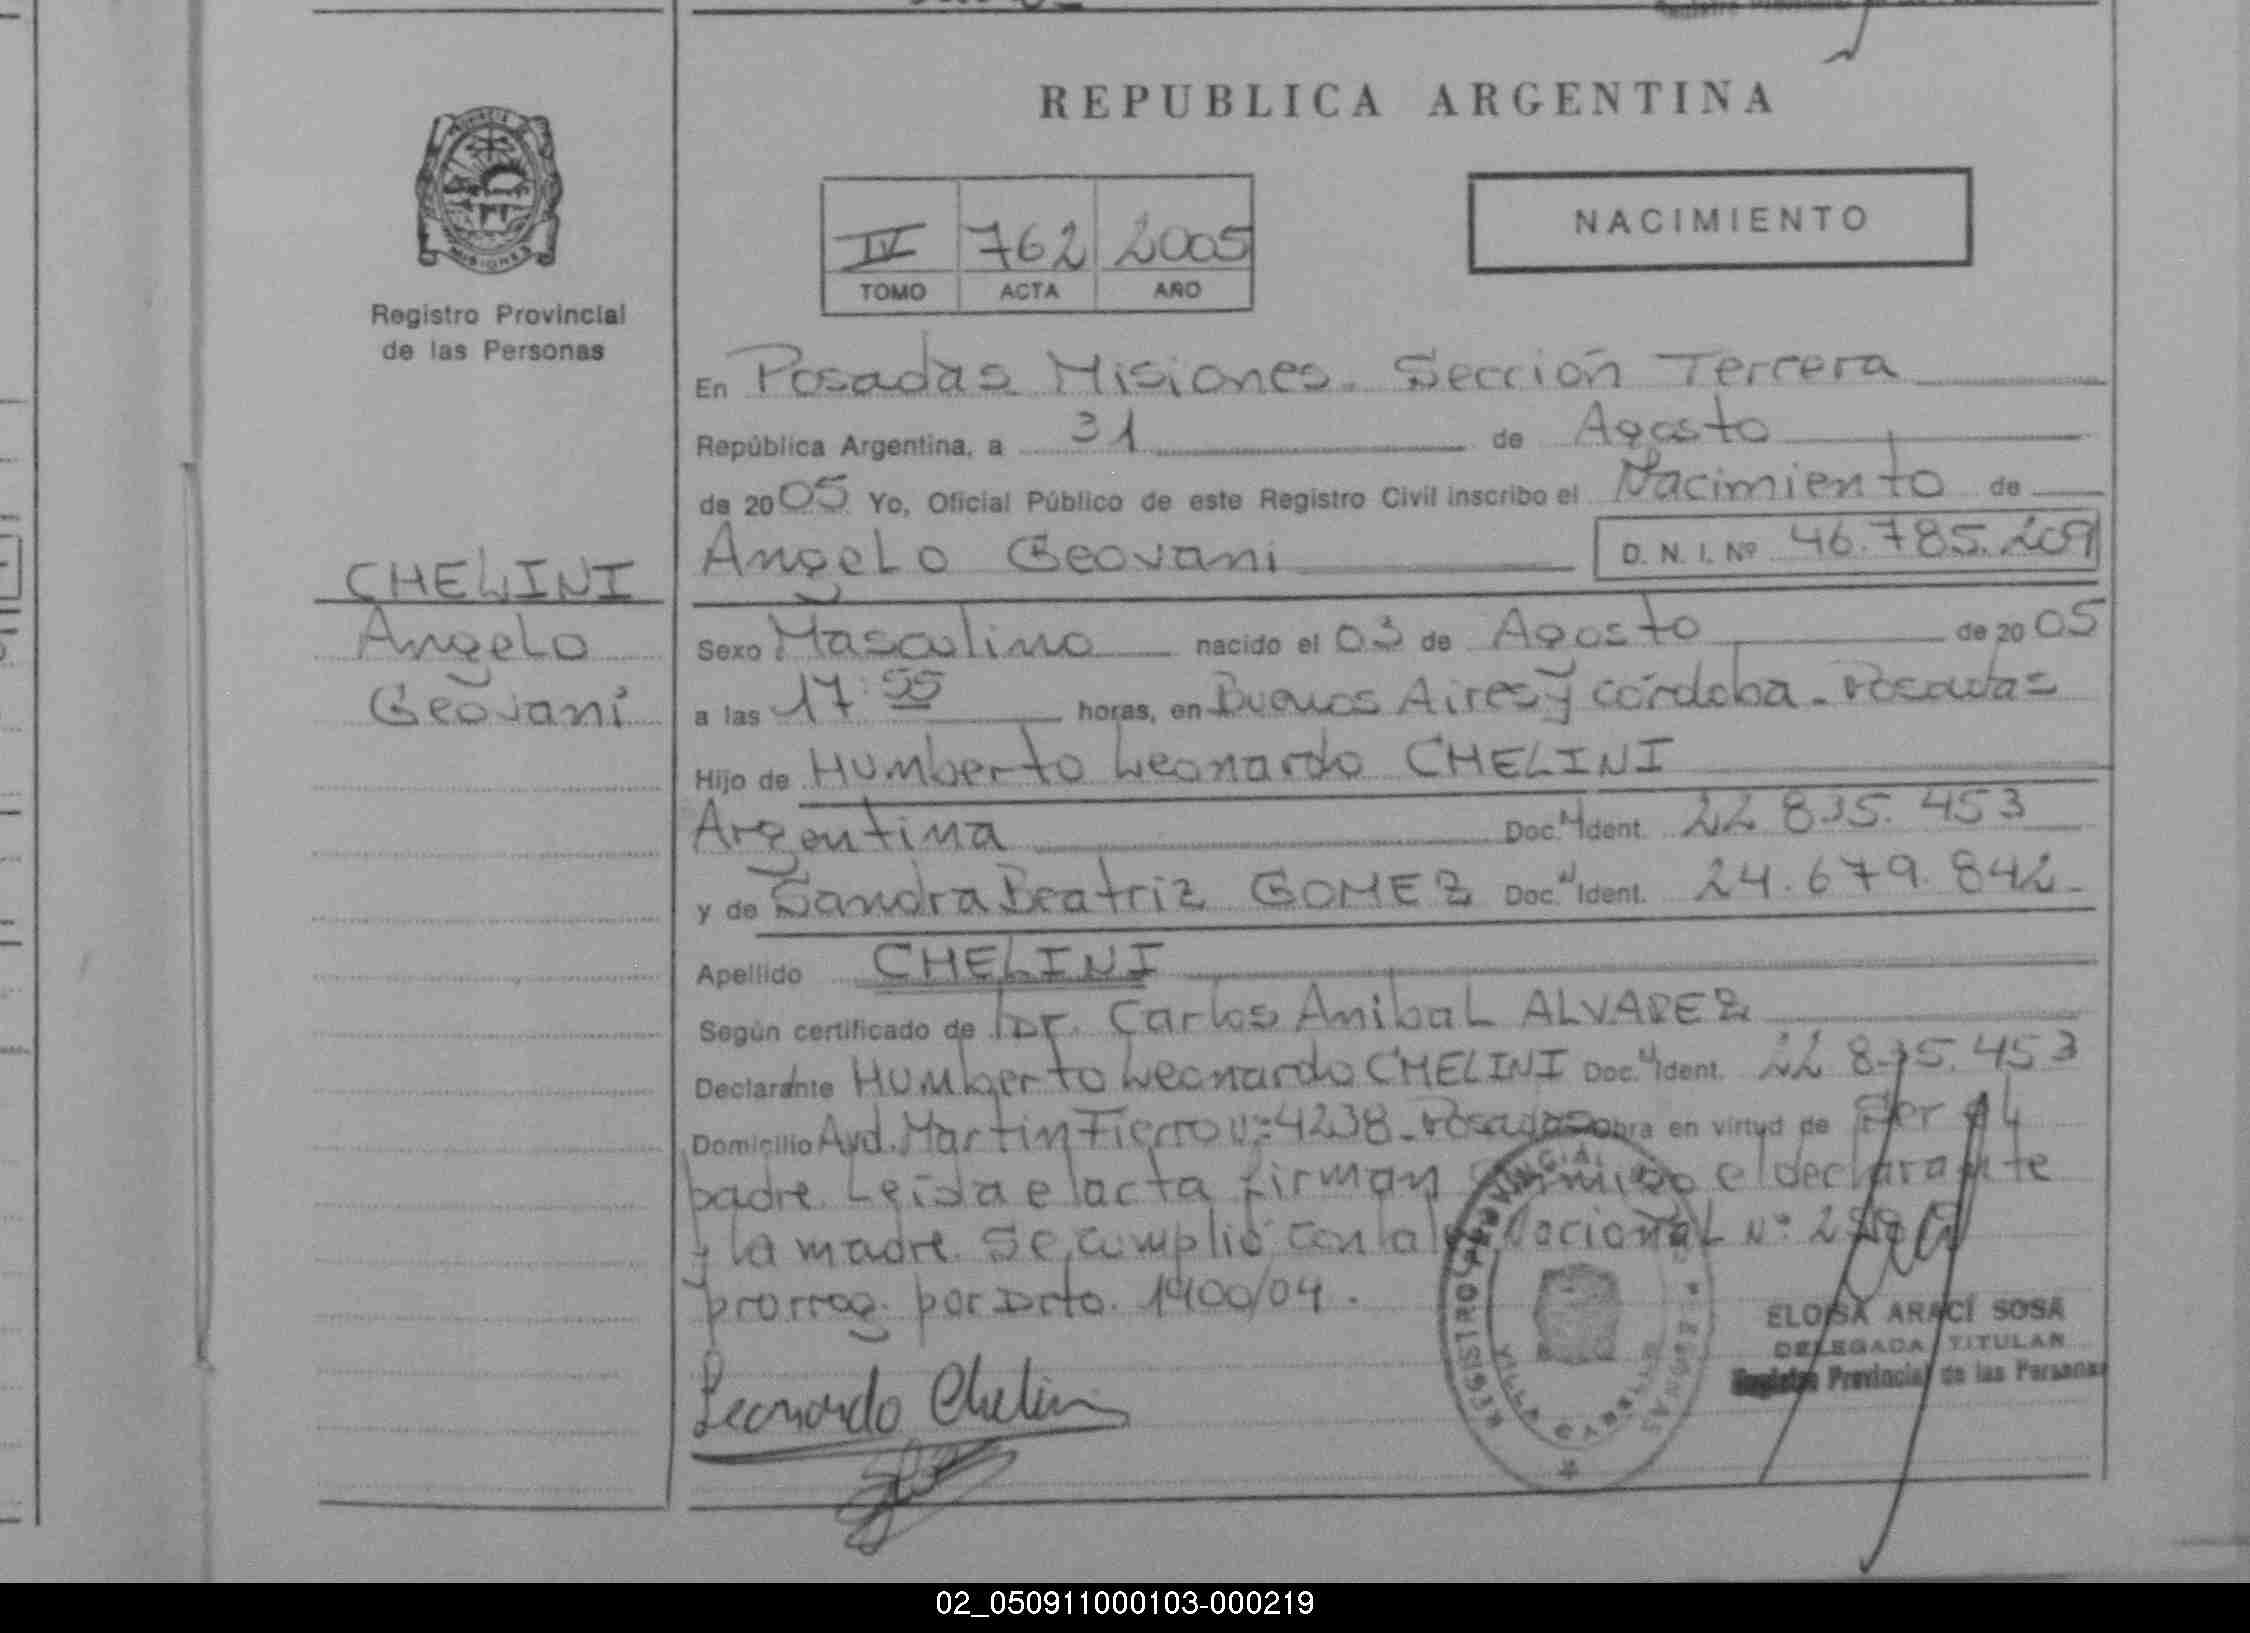 REPUBLICA ARGENTINA
PROVINCIA DE
MISIONES
Registro Provincial
de las Personas
IV 762 2005
TOMO ACTA AÑO
NACIMIENTO
CHELINI
Angelo
Geovani
En Posadas Misiones. Sección Tercera
República Argentina, a 31 de Agosto
de 2005 Yo, Oficial Público de este Registro Civil inscribo el Nacimiento de
Angelo Geovani D. N. I. Nº 46.785.209
Sexo Masculino nacido el 03 de Agosto de 2005
a las 17:55 horas, en Buenos Aires y córdoba - Posadas
Hijo de Humberto Leonardo CHELINI
Argentina Doc. Ident. 22 835.453
y de Sandra Beatriz GOMEZ Doc. Ident. 24.679.842
Apellido CHELINI
Según certificado de Dr. Carlos Anibal ALVAREZ
Declarante Humberto Leonardo CHELINI Doc. Ident. 22 835.453
Domicilio Avd. Martin Fierro nº 4238 - Posadas obra en virtud de Ser el
padre. Leida el acta firman conmigo el declarante
y la madre. Se cumplió con la ley Nacional Nº
prorrog. por Dcto. 1900/04.
Leonardo Chelini
REGISTRO PROVINCIAL DE LAS PERSONAS
VILLA CABELLO
ELOISA ARACÍ SOSA
DELEGADA TITULAR
Registro Provincial de las Personas
02_050911000103-000219